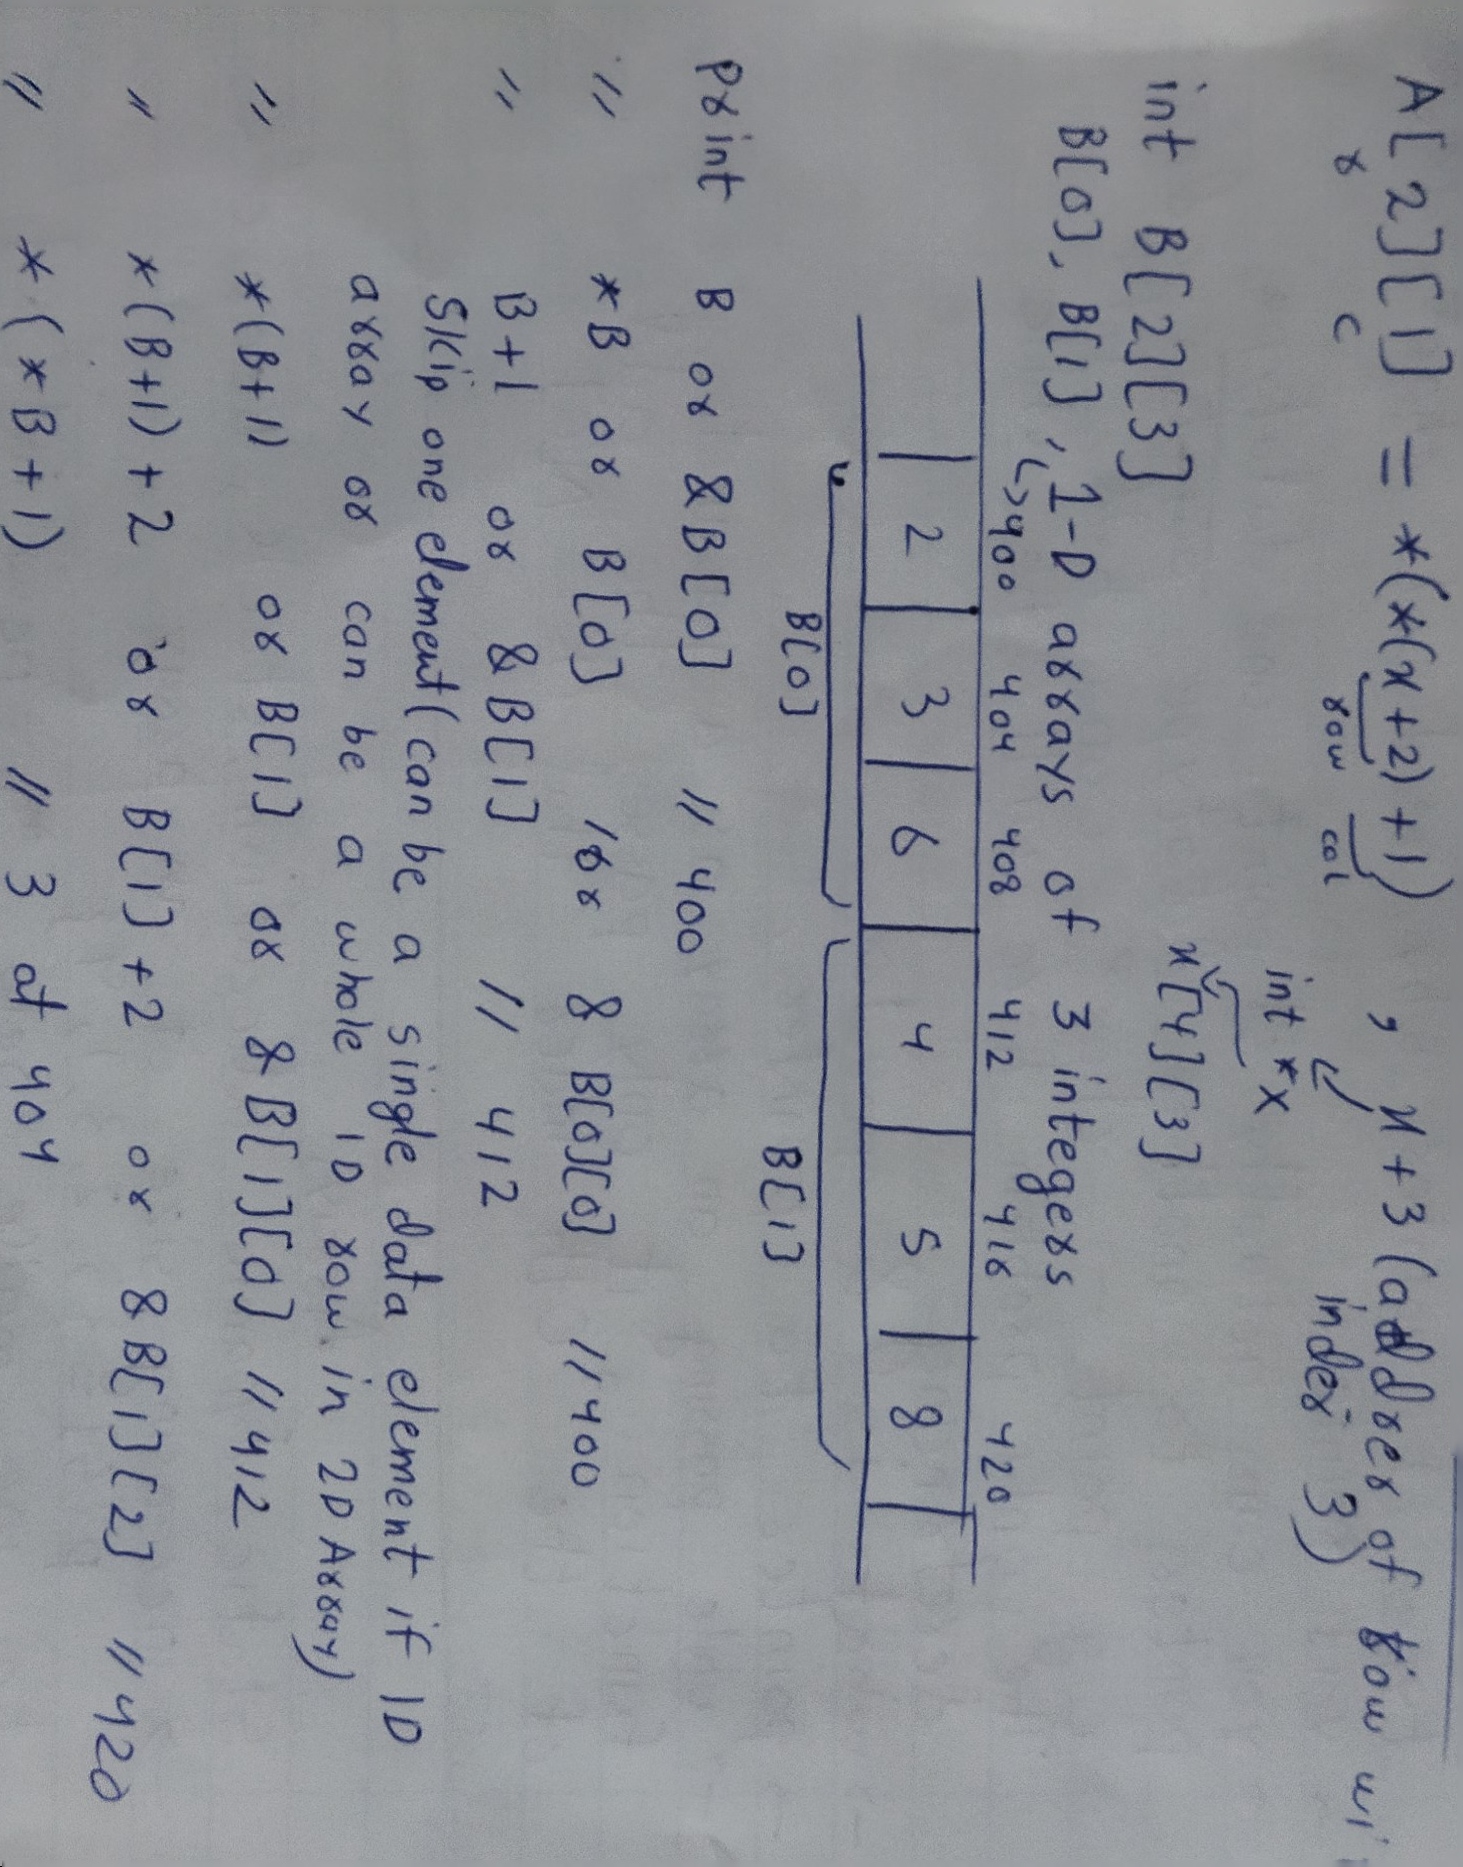 A[2][1] = *(*(x+2)+1) , x+3 (address of row wi
r c row col index 3)
int **x
int B[2][3] x[4][3]
B[0], B[1], 1-D arrays of 3 integers
↳400 404 408 412 416 420
2 3 6 4 5 8
B[0] B[1]
Print B or &B[0] // 400
" *B or B[0] or & B[0][0] // 400
" B+1 or &B[1] // 412
Skip one element (can be a single data element if 1D
array or can be a whole 1D row in 2D Array)
" *(B+1) or B[1] or & B[1][0] // 412
" *(B+1)+2 or B[1]+2 or &B[1][2] // 420
" *(*B+1) // 3 at 404